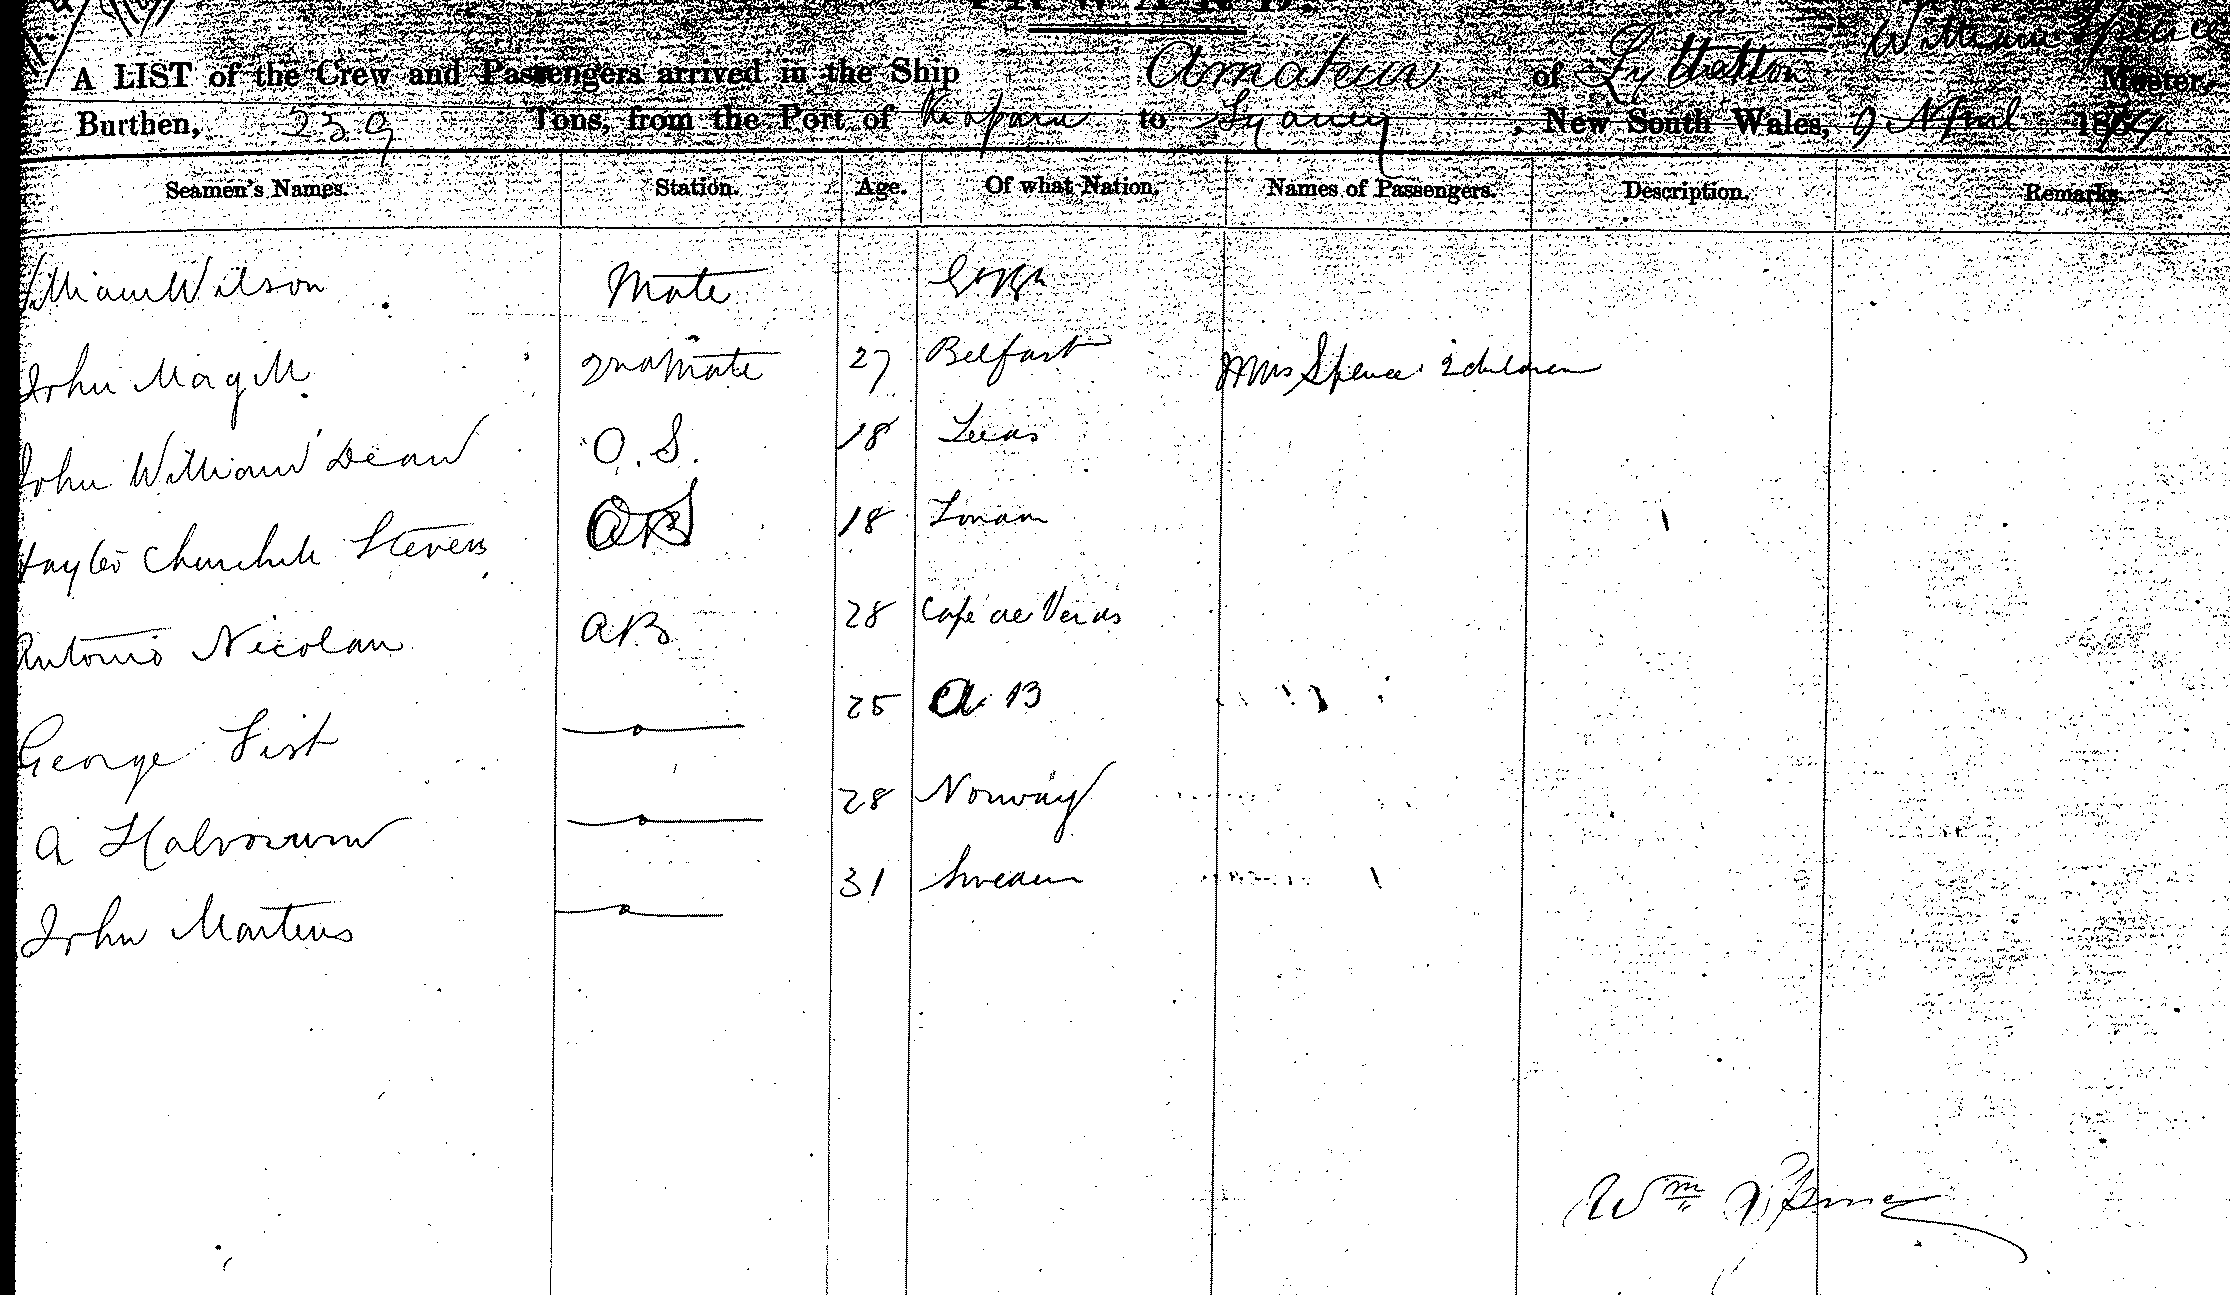 INWARD.
A LIST of the Crew and Passengers arrived in the Ship Amateur of Lyttelton William Spence Master,
Burthen, 239 Tons, from the Port of Kaipara to Sydney, New South Wales, 9 April 18
Seamen's Names. Station. Age. Of what Nation. Names of Passengers. Description. Remarks.
William Wilson Mate
John Magill 2nd Mate 27 Belfast Mrs Spence children
John William Dean O. S. 18 Leeds
Churchill Stevens OS 18 London
Antonio Nicolau AB 28 Cape de Verds
George List 25 A B
A Halvorsen 28 Norway
John Martens 31 Sweden
Wm Spence